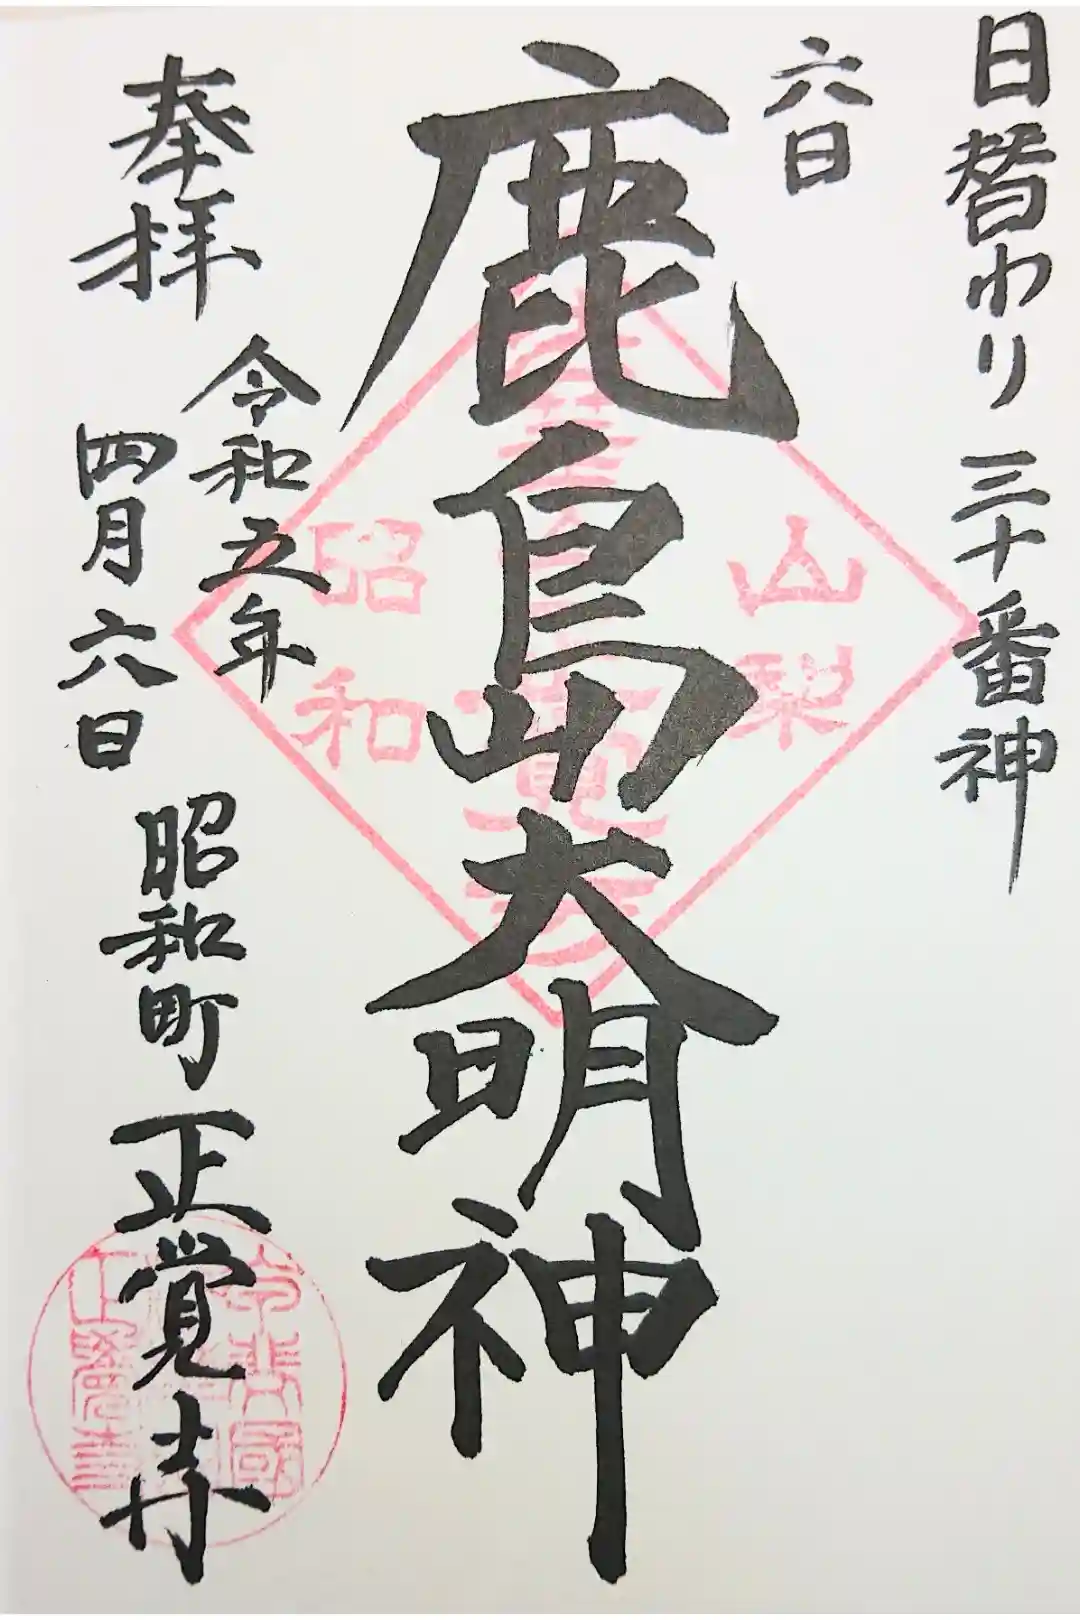 日替わり三十番神
六日
鹿島大明神
奉拝
令和五年
四月六日
昭和町正覚寺
山梨
昭和